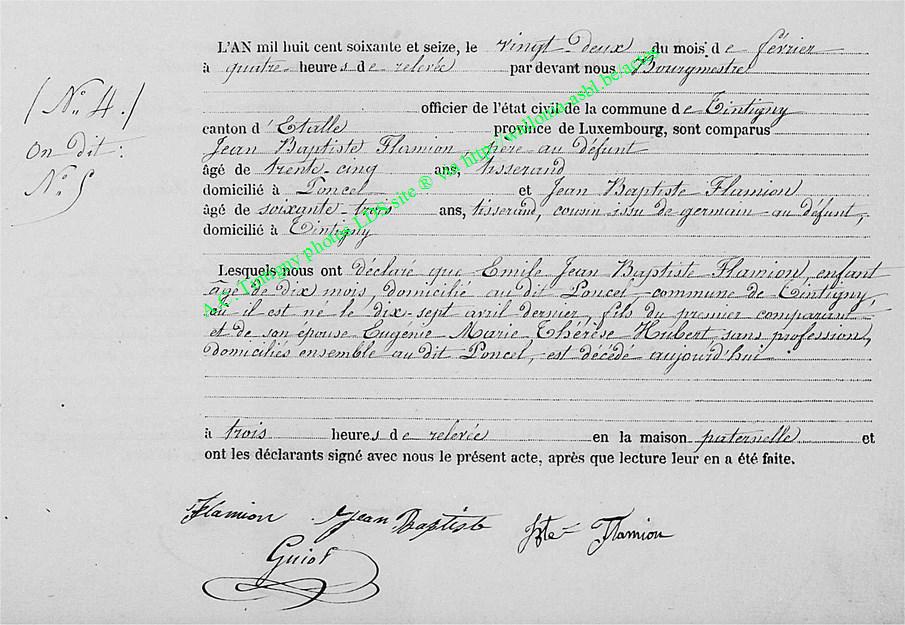 L'AN mil huit cent soixante et seize, le vingt-deux du mois de février
à quatre heures de relevée par devant nous Bourgmestre
officier de l'état civil de la commune de Tintigny
canton d'Etalle province de Luxembourg, sont comparus
Jean Baptiste Flamion, père au défunt
âgé de trente-cinq ans, tisserand
domicilié à Poncel et Jean Baptiste Flamion
âgé de soixante-trois ans, tisserand, cousin issu de germain au défunt,
domicilié à Tintigny
Lesquels nous ont déclaré que Emile Jean Baptiste Flamion, enfant
âgé de dix mois, domicilié au dit Poncel, commune de Tintigny,
où il est né le dix-sept avril dernier, fils du premier comparant
et de son épouse Eugénie Marie Thérèse Hubert, sans profession,
domiciliés ensemble au dit Poncel, est décédé aujourd'hui
à trois heures de relevée en la maison paternelle et
ont les déclarants signé avec nous le présent acte, après que lecture leur en a été faite.
(No 4.)
On dit:
No 5
Flamion Jean Baptiste Jbte Flamion
Guiot
A.C. Tintigny photos LDS site ® via http://wallonia-asbl.be/actes